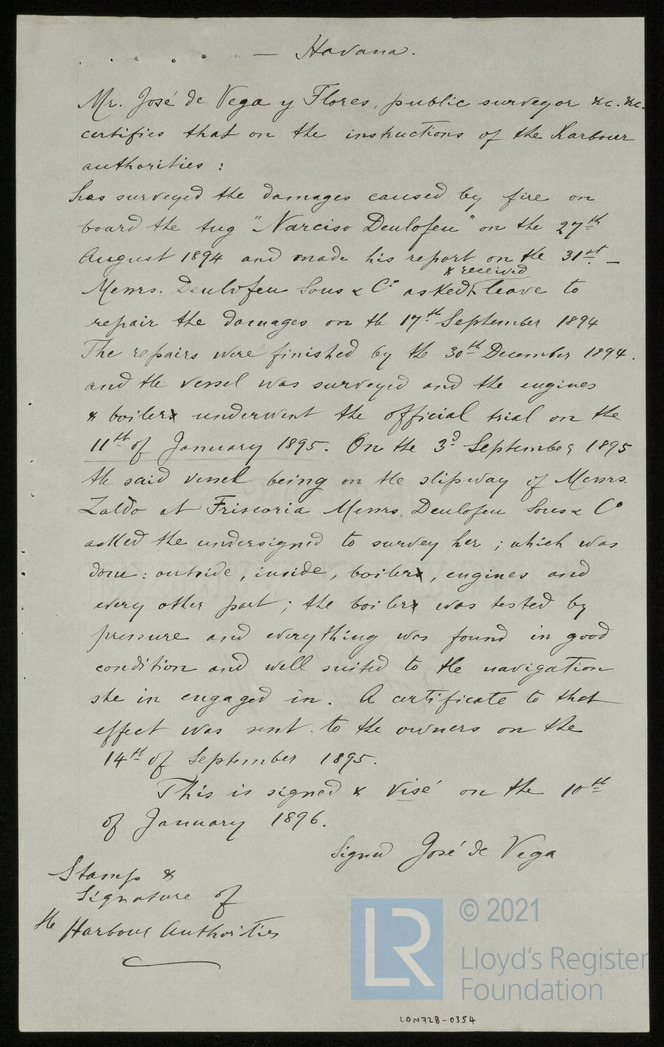 . . . . . — Havana.
Mr. José de Vega y Flores, public surveyor &c. &c.
certifies that on the instructions of the Harbour
authorities :
has surveyed the damages caused by fire on
board the tug "Narciso Deulofeu" on the 27th
August 1894 and made his report on the 31st —
& received
Messrs. Deulofeu Sons & Co asked leave to
repair the damages on th 17th September 1894
The repairs were finished by the 30th December 1894.
and the vessel was surveyed and the engines
& boiler underwent the official trial on the
11th of January 1895. On the 3d September 1895
the said vessel being on the slipway of Messrs.
Zaldo at Friscoria Messrs. Deulofeu Sons & Co
asked the undersigned to survey her ; which was
done : outside, inside, boiler, engines and
every other part ; the boiler was tested by
pressure and everything was found in good
condition and well suited to the navigation
she in engaged in. A certificate to that
effect was sent to the owners on the
14th of September 1895.
This is signed & visé on the 10th
of January 1896.
Signed José de Vega
Stamp &
Signature of
the Harbour Authorities
© 2021
LR
Lloyd's Register
Foundation
LON728-0354